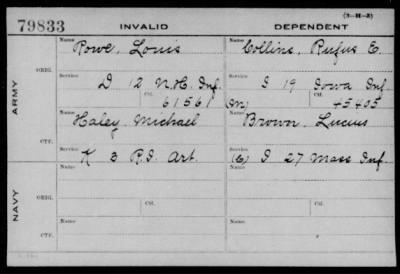 (3-H-3)
79833 INVALID DEPENDENT
ARMY
ORIG.
Name Rowe, Louis Name Collins, Rufus E.
Service D 12 N.H. Inf. Service I 19 Iowa Inf.
Ctf. 61561 (M) Ctf. 45405
CTF.
Name Haley, Michael Name Brown, Lucius
Service K 3 R.I. Art. Service I 27 Mass Inf.
NAVY
ORIG.
Name Name
Service Ctf. Service Ctf.
CTF.
Name Name
Service Service